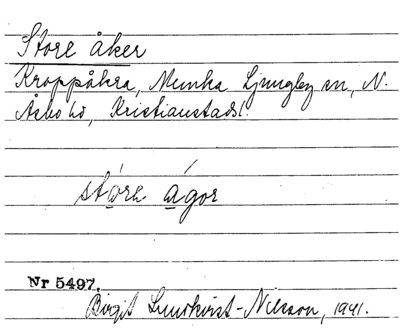 Store åker
Kroppåkra, Munka Ljungby sn, N.
Åsbo hd, Kristianstadsl.
ágor
Nr 5497.
Birgit Lundkvist-Nilsson, 1941.